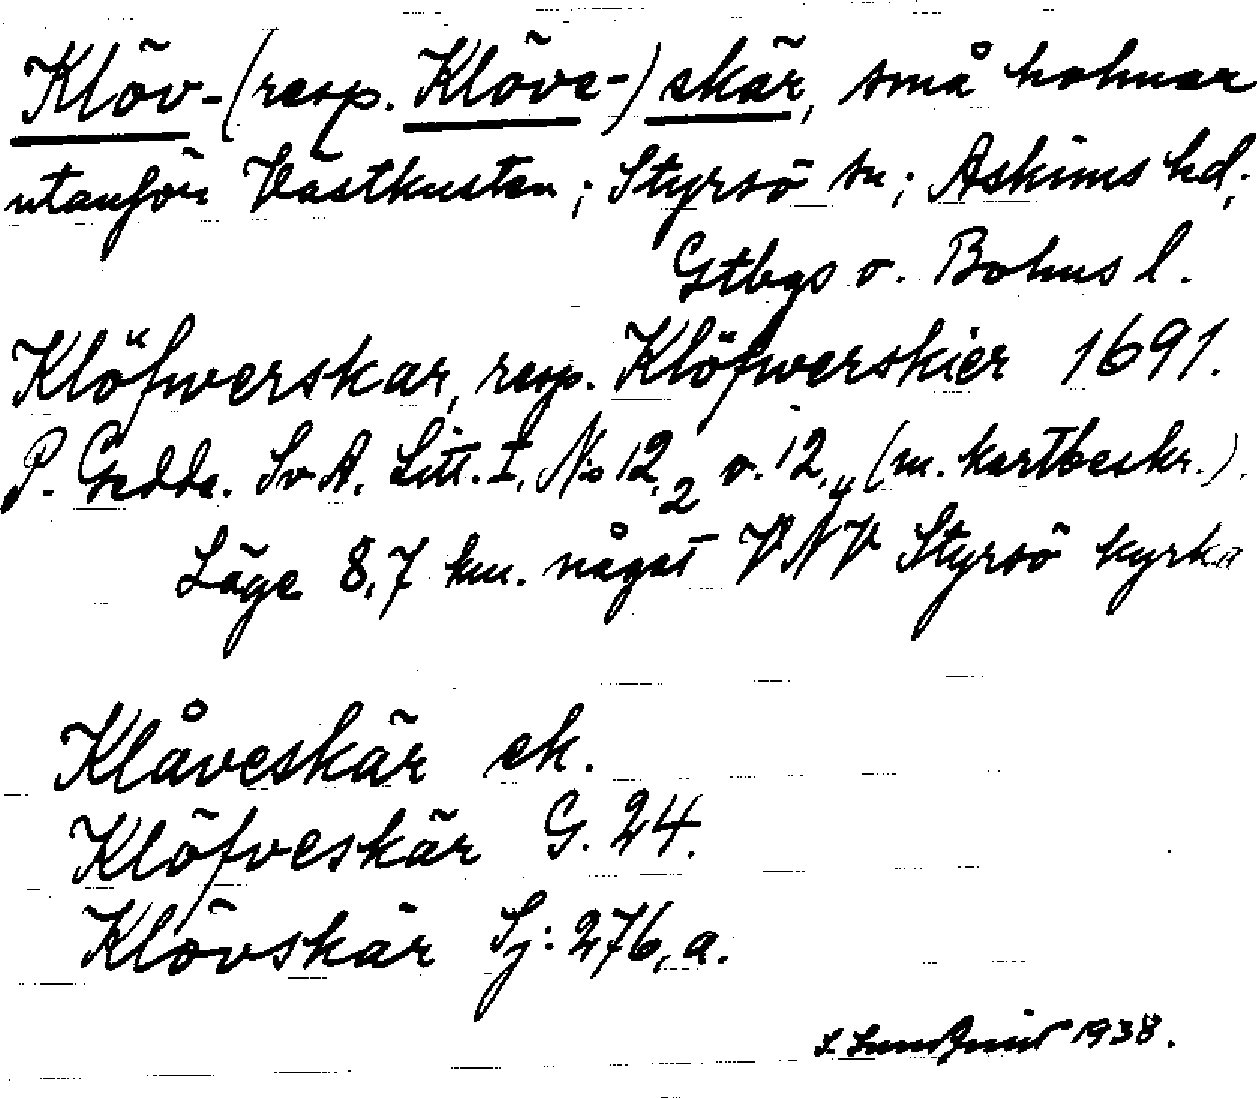 Klöv-(resp. Klöve-) skär, små holmar
utanför Västkusten; Styrsö sn; Askims hd;
Gtbgs o. Bohus l.
Klöfwerskar, resp. Klöfwerskier 1691.
P. Gedda. Sv A. Litt. I, No 12,2 o. 12,4 (m. kartbeskr.).
Läge 8,7 km. något VNV Styrsö kyrka
Klåveskär ek.
Klöfveskär G. 24.
Klövskär Sj: 276, a.
1938.